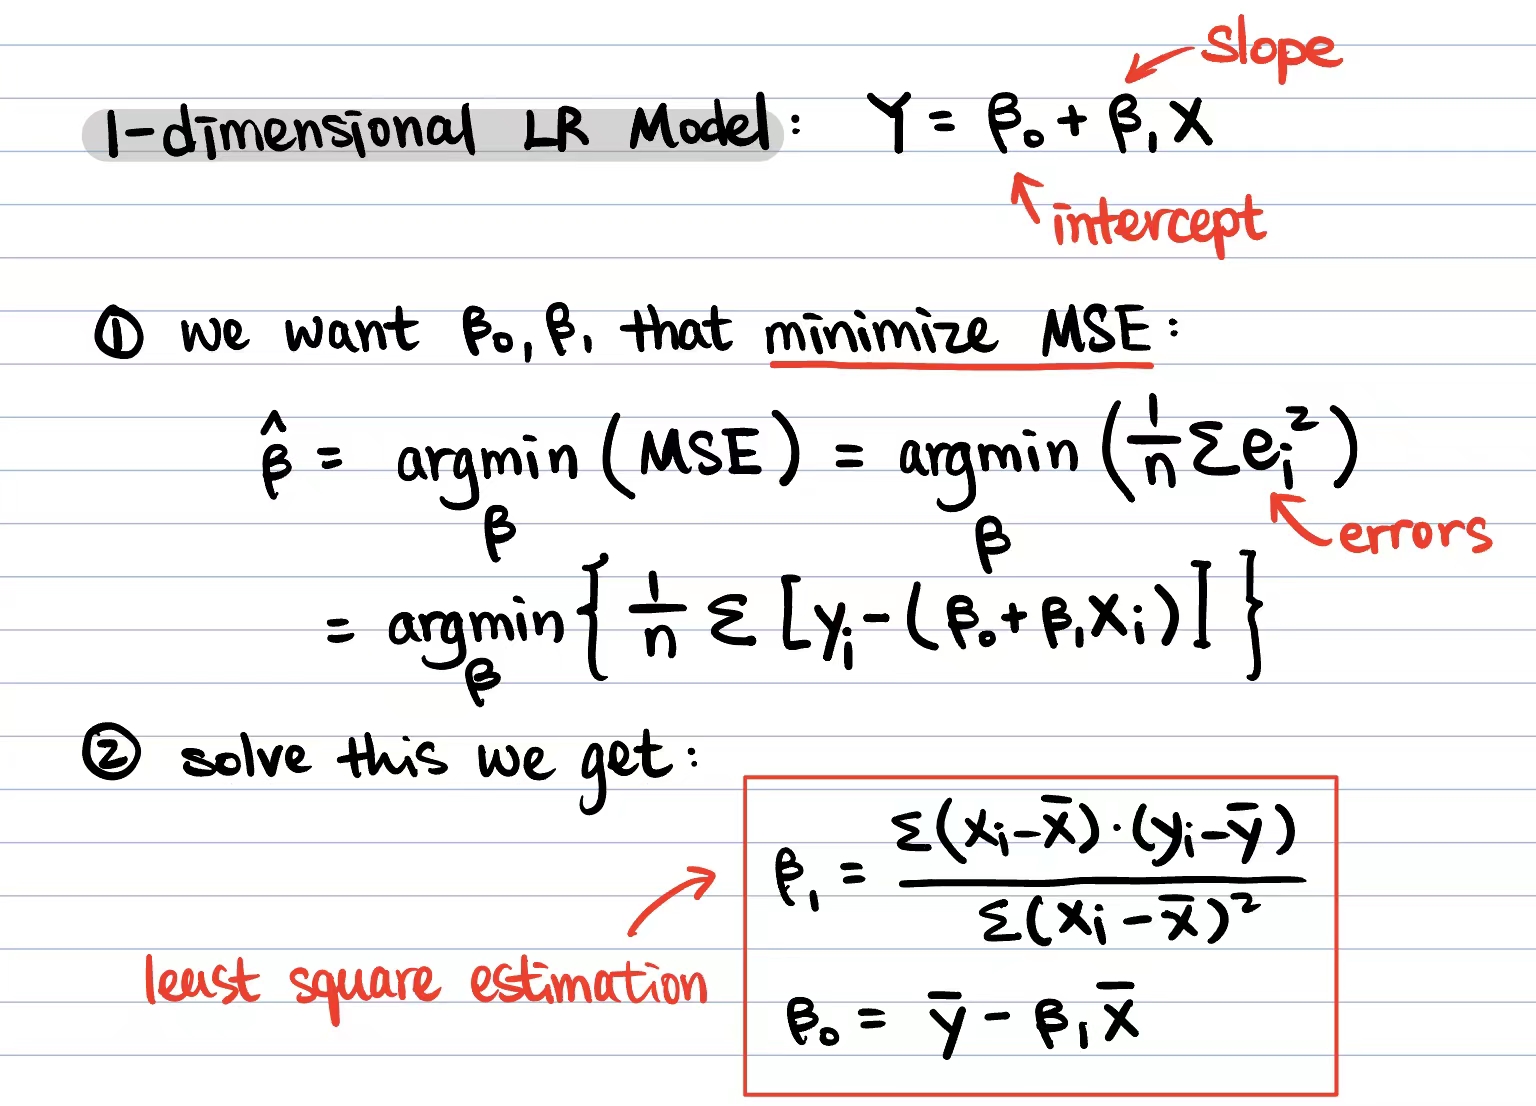 slope
1-dimensional LR Model: Y = β₀ + β₁X
intercept
① we want β₀, β₁ that minimize MSE:
β̂ = argmin (MSE) = argmin (1/n Σ eᵢ²)
β β
errors
= argmin { 1/n Σ [yᵢ - (β₀ + β₁Xᵢ)] }
β
② solve this we get:
β₁ = Σ(xᵢ - x̄)·(yᵢ - ȳ) / Σ(xᵢ - x̄)²
least square estimation
β₀ = ȳ - β₁x̄